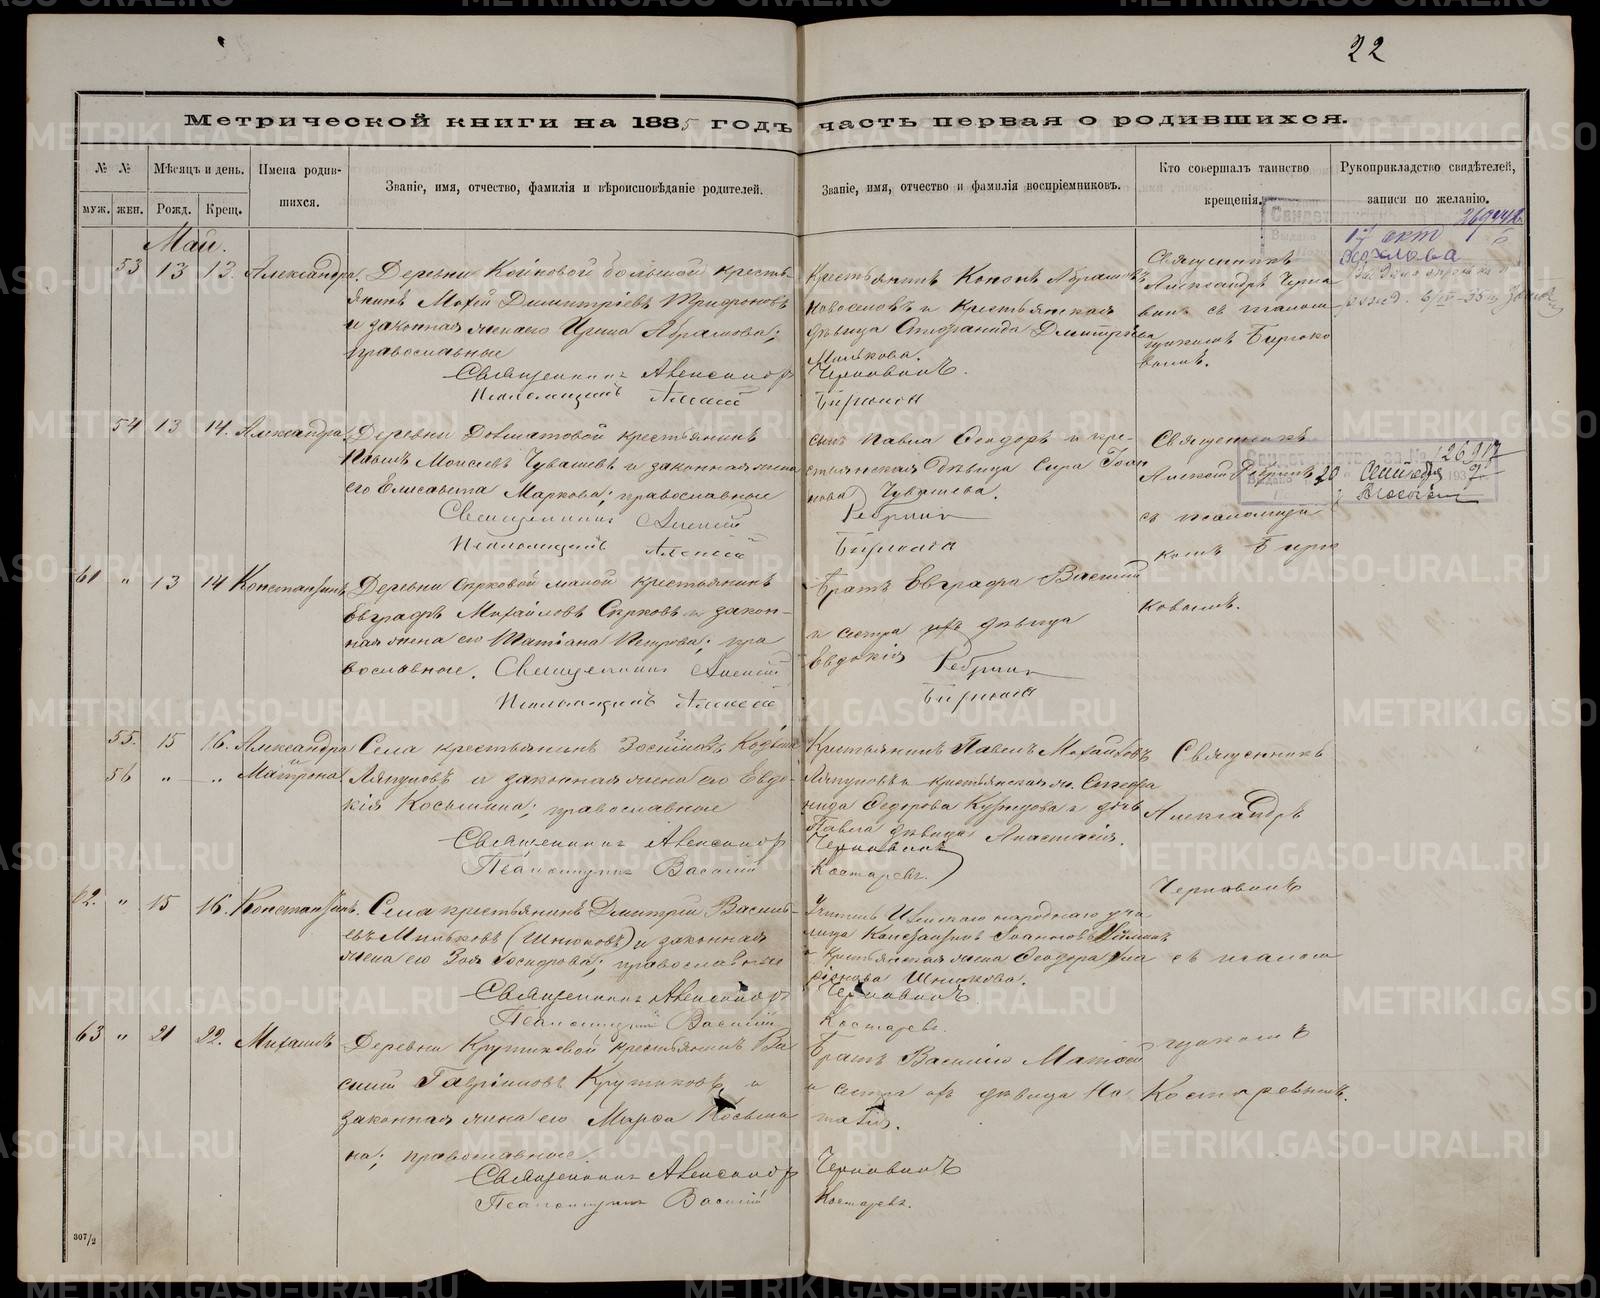 22
Метрической книги на 1885 годъ часть первая о родившихся.
№ №
муж. жен.
Мѣсяцъ и день.
Рожд. Крещ.
Имена родив-
шихся.
Званіе, имя, отчество, фамилія и вѣроисповѣданіе родителей.
Званіе, имя, отчество и фамилія воспріемниковъ.
Кто совершалъ таинство
крещенія.
Рукоприкладство свидѣтелей,
записи по желанію.
Май.
53 13 13. Александра
Деревни большой кресть-
янинъ Димитріевъ Трифоновъ
и законная жена его Ирина Абрамова;
православные
Священникъ Александръ
Псаломщикъ Алексій
Крестьянинъ Кононъ Абрамовъ
Новоселовъ и крестьянская
дѣвица Стефанида Димитріева
Милькова.
Черновинъ.
Священникъ
Александръ Черно
винъ съ псалом
щикомъ Бирюко
вымъ.
17 окт
54 13 14. Александра
Деревни Долматовой крестьянинъ
Павелъ Моисеевъ Чувашевъ и законная жена
его Елисавета Маркова; православные
Священникъ Алексій
Псаломщикъ Алексій
сынъ Павла Ѳеодоръ и кре-
стьянская дѣвица Сира Іоан
нова Чувашева.
Священникъ
Алексій
съ псаломщи
комъ Бирю
ковымъ.
20 Сентября 1937
61 " 13 14 Константинъ
Деревни малой крестьянинъ
Евграфъ Михайловъ и закон-
ная жена его Татіана Петрова; пра
вославные. Священникъ Алексій
Псаломщикъ Алексій
Братъ Евграфа Василій
и сестра ихъ дѣвица
Евдокія
55. 15 16. Александра
и
56 " " Матрона
Села крестьянинъ
Ляпуновъ и законная жена его Евдо-
кія Косьмина; православные
Священникъ Александръ
Псаломщикъ Василій
Крестьянинъ Павелъ Михайловъ
Ляпуновъ и крестьянская ж. Стефа
нида Ѳедорова Кузнецова и дочь
Павла дѣвица Анастасія.
Черновинъ
Костаревъ.
Священникъ
Александръ
Черновинъ
съ псалом
щикомъ
Костаревымъ.
62. " 15 16. Константинъ.
Села крестьянинъ Димитрій Василь-
евъ Мильковъ (Шнюковъ) и законная
жена его Зоя; православные
Священникъ Александръ
Псаломщикъ Василій
Учитель народнаго учи
лища Константинъ Іоанновъ
и крестьянская жена Ѳеодора
Шнюкова.
Черновинъ
Костаревъ.
63 " 21 22. Михаилъ
Деревни Крутиковой крестьянинъ Ва
силій Гавріиловъ Крутиковъ и
законная жена его Марѳа Косьми
на; православные
Священникъ Александръ
Псаломщикъ Василій
Братъ Василія Матѳей
и сестра ихъ дѣвица На
талія.
Черновинъ
Костаревъ.
307/2
METRIKI.GASO-URAL.RU